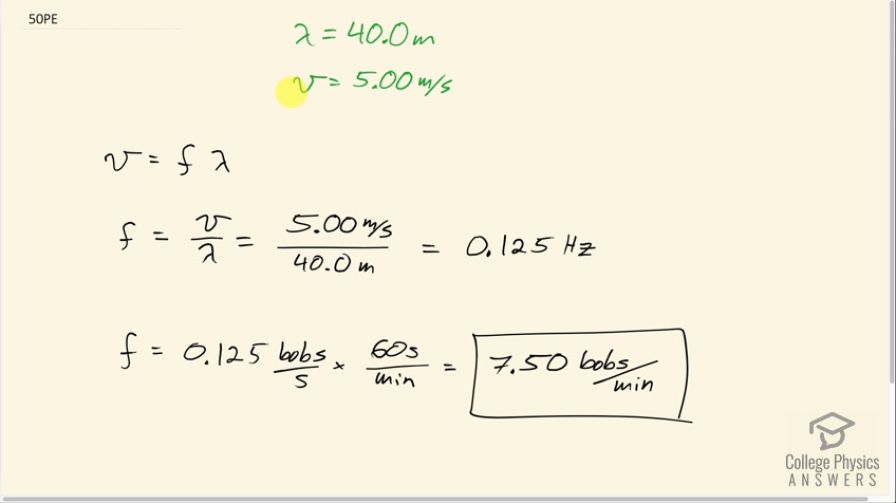 50PE
λ = 40.0 m
v = 5.00 m/s
v = f λ
f = v/λ = 5.00 m/s / 40.0 m = 0.125 Hz
f = 0.125 bobs/s × 60s/min = 7.50 bobs/min
College Physics
ANSWERS